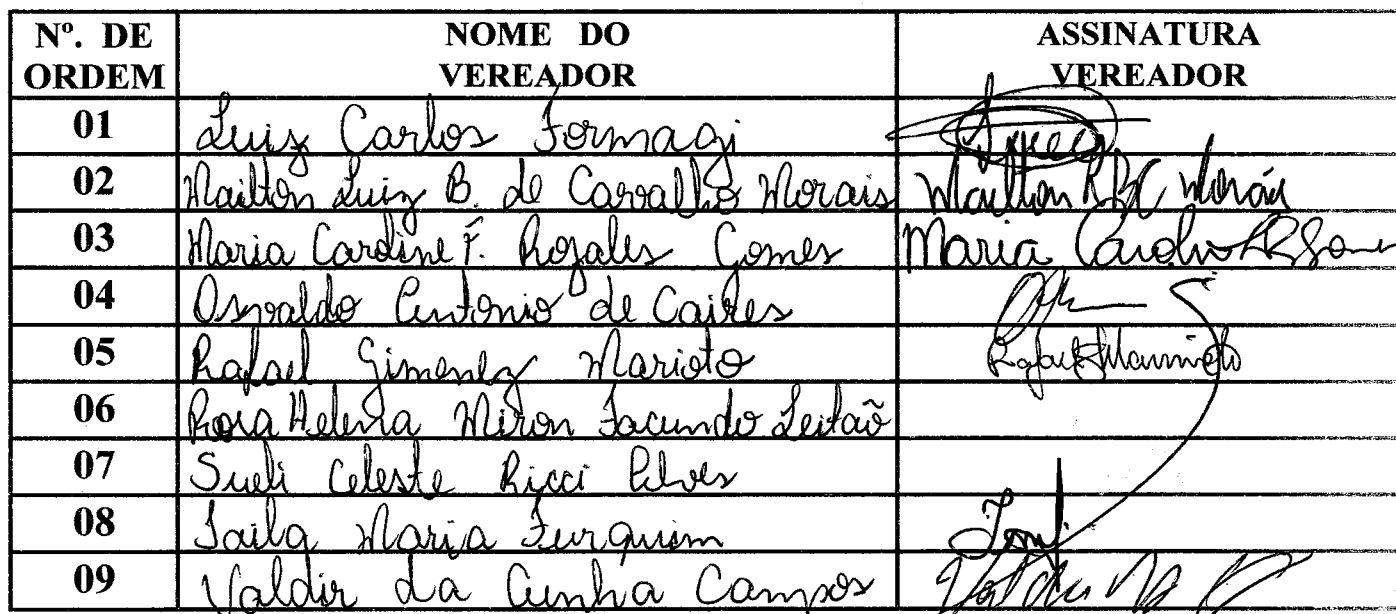 Nº. DE ORDEM NOME DO VEREADOR ASSINATURA VEREADOR
01 Luiz Carlos Formagi
02 Mailton Luiz B. de Carvalho Morais Mailton LBC Morais
03 Maria Caroline F. Rozales Gomes Maria Carolin
04 Osvaldo Antonio de Caires
05 Rafael Gimenez Marioto Rafael Marioto
06 Rosa Helena Miron Facundo Leitão
07 Sueli Celeste Ricci Alves
08 Maria Furquim
09 Valdir da Cunha Campos